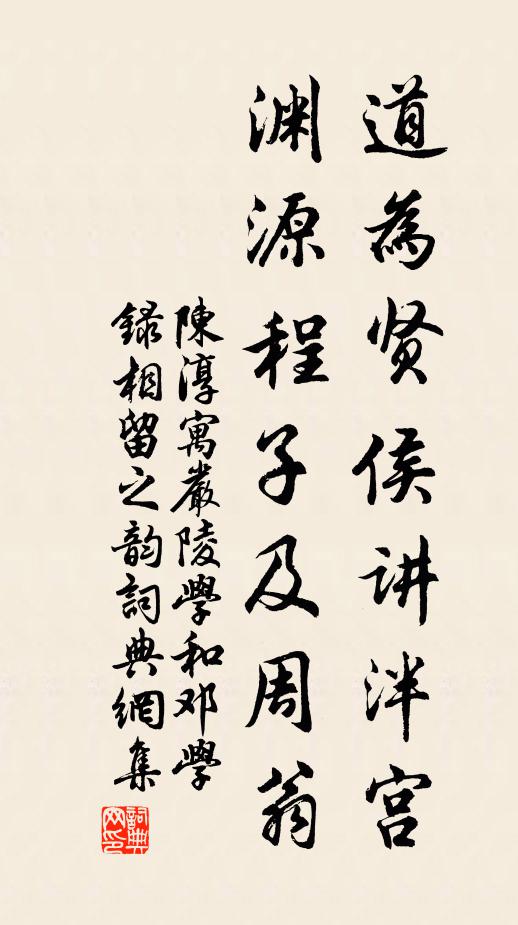 道為贤侯讲泮宫
渊源程子及周翁
陳淳寓嚴陵學和邓學
録相留之韵詞典網集
詞典网印